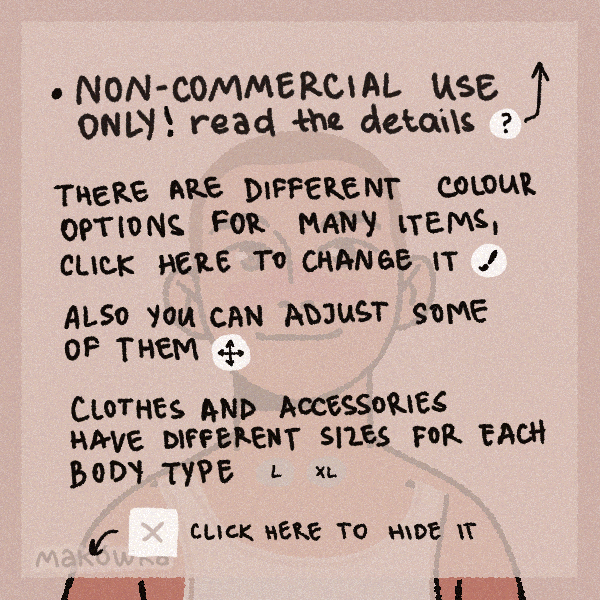 • NON-COMMERCIAL USE
ONLY! read the details ?
THERE ARE DIFFERENT COLOUR
OPTIONS FOR MANY ITEMS,
CLICK HERE TO CHANGE IT
ALSO YOU CAN ADJUST SOME
OF THEM
CLOTHES AND ACCESSORIES
HAVE DIFFERENT SIZES FOR EACH
BODY TYPE L XL
CLICK HERE TO HIDE IT
makowka